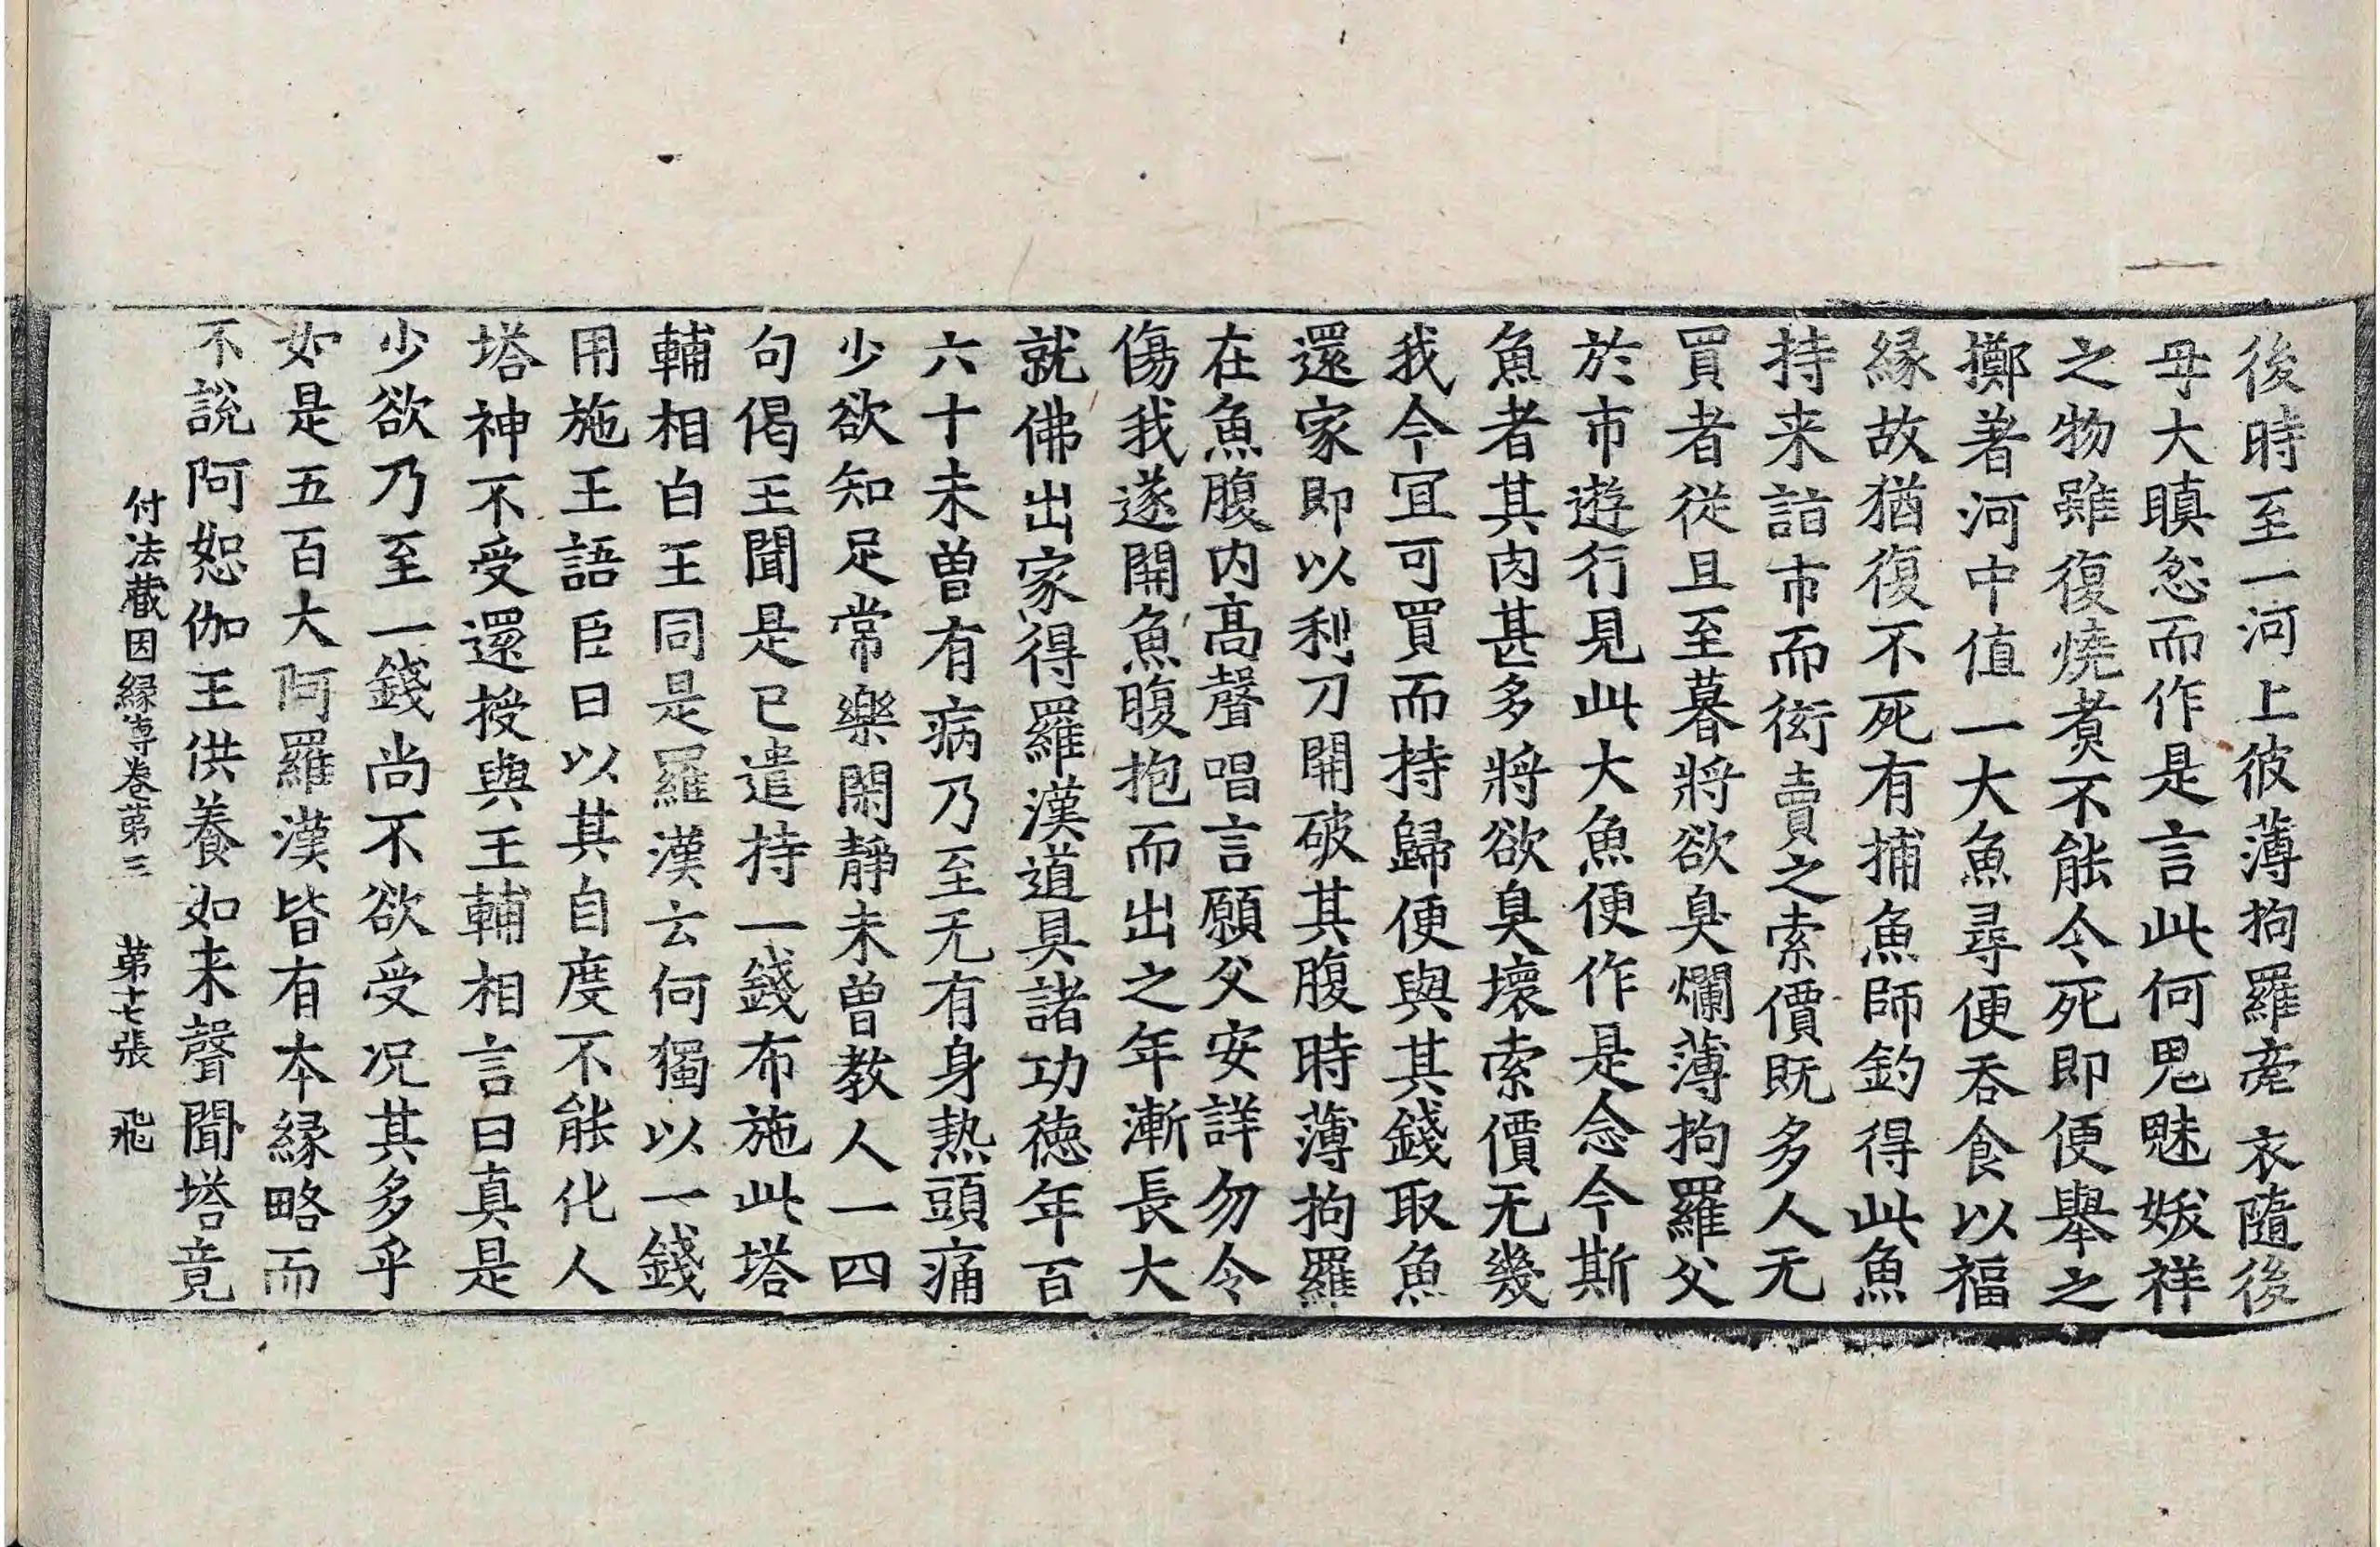 後時至一河上彼薄拘羅牽衣隨後
母大瞋忿而作是言此何鬼魅妖祥
之物雖復燒煮不能令死即便舉之
擲著河中值一大魚尋便吞食以福
緣故猶復不死有捕魚師釣得此魚
持来詣市而衒賣之索價既多人无
買者從旦至暮將欲臭爛薄拘羅父
於市遊行見此大魚便作是念今斯
魚者其肉甚多將欲臭壞索價无幾
我今冝可買而持歸便與其錢取魚
還家即以利刀開破其腹時薄拘羅
在魚腹内高聲唱言願父安詳勿令
傷我遂開魚腹抱而出之年漸長大
就佛出家得羅漢道具諸功德年百
六十未曾有病乃至无有身熱頭痛
少欲知足常樂閑靜未曾教人一四
句偈王聞是已遣持一錢布施此塔
輔相白王同是羅漢云何獨以一錢
用施王語臣曰以其自度不能化人
塔神不受還授與王輔相言曰真是
少欲乃至一錢尚不欲受况其多乎
如是五百大阿羅漢皆有本緣略而
不說阿恕伽王供養如来聲聞塔竟
付法藏因緣傳卷第三 第七張 飛